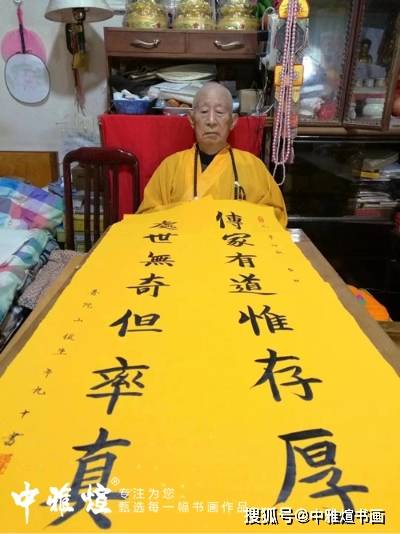 傳家有道惟存厚
處世無奇但率真
普陀山 生 年九十書
中雅煊®
专注为您
甄选每一幅书画作品
搜狐号@中雅煊书画